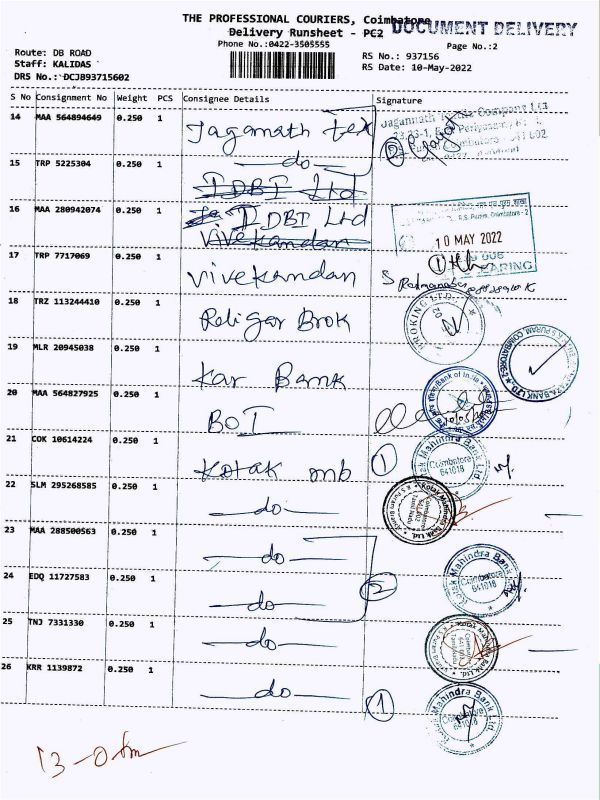 THE PROFESSIONAL COURIERS, Coimbatore
DOCUMENT DELIVERY
Delivery Runsheet - PC2
Phone No.:0422-3505555
Page No.:2
Route: DB ROAD
RS No.: 937156
Staff: KALIDAS
RS Date: 10-May-2022
DRS No.: DCJ893715602
S No Consignment No Weight PCS Consignee Details Signature
14 MAA 564894649 0.250 1 Jaganath Tex
Jagannath Textile Company Ltd
15 TRP 5225304 0.250 1 do
IDBI Ltd
16 MAA 280942074 0.250 1 IDBI Ltd
Vivekandan
R.S. Puram, Coimbatore - 2
10 MAY 2022
CLEARING
17 TRP 7717069 0.250 1 Vivekandan
18 TRZ 113244410 0.250 1 Religar Brok
19 MLR 20945038 0.250 1 Kar Bank
20 MAA 564827925 0.250 1 BOI
Bank of India
21 COK 10614224 0.250 1 Kotak mb
1
Kotak Mahindra Bank Ltd.
Coimbatore
641018
22 SLM 295268585 0.250 1 do
Kotak Mahindra Bank Ltd.
23 MAA 288500563 0.250 1 do
24 EDQ 11727583 0.250 1 do
2
Kotak Mahindra Bank
Coimbatore
641018
25 TNJ 7331330 0.250 1 do
Kotak Mahindra Bank Ltd.
26 KRR 1139872 0.250 1 do
1
Kotak Mahindra Bank Ltd.
Coimbatore
641018